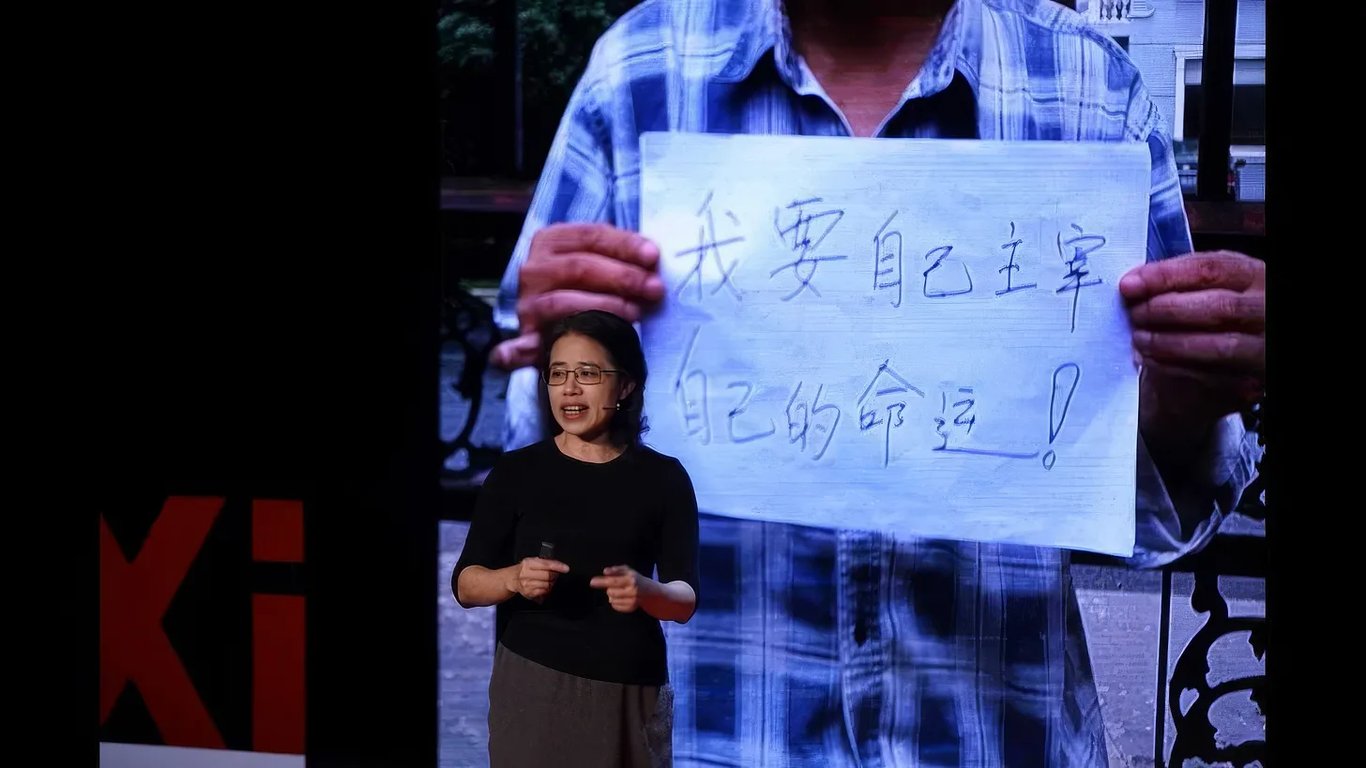 我要自己主宰
自己的命运!
Xi